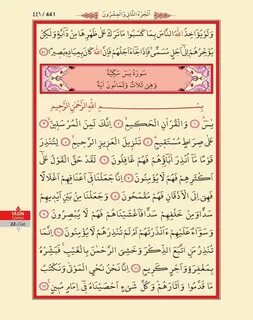 ٤٤١ / 441 اَلْجُزْءُ الثَّانِي وَالْعِشْرُونَ
وَلَوْ يُؤَاخِذُ اللّٰهُ النَّاسَ بِمَا كَسَبُوا مَا تَرَكَ عَلٰى ظَهْرِهَا مِنْ دَٓابَّةٍ وَلٰكِنْ
يُؤَخِّرُهُمْ اِلٰٓى اَجَلٍ مُسَمًّى فَاِذَا جَٓاءَ اَجَلُهُمْ فَاِنَّ اللّٰهَ كَانَ بِعِبَادِهٖ بَصٖيرًا ﴿٤٥﴾
سُورَةُ يٰسٓ مَكِّيَّةٌ
وَهِيَ ثَلَاثٌ وَثَمَانُونَ اٰيَةً
بِسْمِ اللّٰهِ الرَّحْمٰنِ الرَّحٖيمِ
يٰسٓ ﴿١﴾ وَالْقُرْاٰنِ الْحَكٖيمِ ﴿٢﴾ اِنَّكَ لَمِنَ الْمُرْسَلٖينَ ﴿٣﴾
عَلٰى صِرَاطٍ مُسْتَقٖيمٍ ﴿٤﴾ تَنْزٖيلَ الْعَزٖيزِ الرَّحٖيمِ ﴿٥﴾ لِتُنْذِرَ
قَوْمًا مَٓا اُنْذِرَ اٰبَٓاؤُهُمْ فَهُمْ غَافِلُونَ ﴿٦﴾ لَقَدْ حَقَّ الْقَوْلُ عَلٰٓى
اَكْثَرِهِمْ فَهُمْ لَا يُؤْمِنُونَ ﴿٧﴾ اِنَّا جَعَلْنَا فٖٓي اَعْنَاقِهِمْ اَغْلَالًا
فَهِيَ اِلَى الْاَذْقَانِ فَهُمْ مُقْمَحُونَ ﴿٨﴾ وَجَعَلْنَا مِنْ بَيْنِ اَيْدٖيهِمْ
سَدًّا وَمِنْ خَلْفِهِمْ سَدًّا فَاَغْشَيْنَاهُمْ فَهُمْ لَا يُبْصِرُونَ ﴿٩﴾
وَسَوَٓاءٌ عَلَيْهِمْ ءَاَنْذَرْتَهُمْ اَمْ لَمْ تُنْذِرْهُمْ لَا يُؤْمِنُونَ ﴿١٠﴾ اِنَّمَا
تُنْذِرُ مَنِ اتَّبَعَ الذِّكْرَ وَخَشِيَ الرَّحْمٰنَ بِالْغَيْبِ فَبَشِّرْهُ
بِمَغْفِرَةٍ وَاَجْرٍ كَرٖيمٍ ﴿١١﴾ اِنَّا نَحْنُ نُحْيِ الْمَوْتٰى وَنَكْتُبُ
مَا قَدَّمُوا وَاٰثَارَهُمْ وَكُلَّ شَيْءٍ اَحْصَيْنَاهُ فٖٓي اِمَامٍ مُبٖينٍ ﴿١٢﴾
YASİN
SÛRESİ
22. Cüz